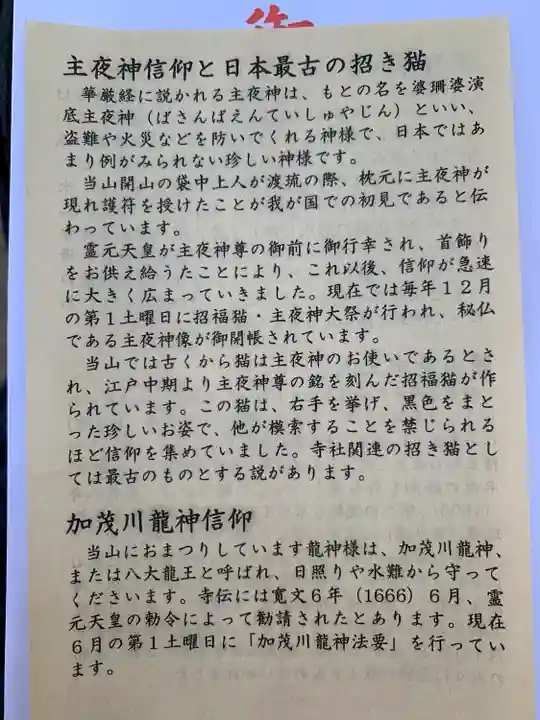 主夜神信仰と日本最古の招き猫
華厳経に説かれる主夜神は、もとの名を婆珊婆演
底主夜神（ばさんばえんていしゅやじん）といい、
盗難や火災などを防いでくれる神様で、日本ではあ
まり例がみられない珍しい神様です。
当山開山の袋中上人が渡琉の際、枕元に主夜神が
現れ護符を授けたことが我が国での初見であると伝
わっています。
霊元天皇が主夜神尊の御前に御行幸され、首飾り
をお供え給うたことにより、これ以後、信仰が急速
に大きく広まっていきました。現在では毎年１２月
の第１土曜日に招福猫・主夜神大祭が行われ、秘仏
である主夜神像が御開帳されています。
当山では古くから猫は主夜神のお使いであるとさ
れ、江戸中期より主夜神尊の銘を刻んだ招福猫が作
られています。この猫は、右手を挙げ、黒色をまと
った珍しいお姿で、他が模索することを禁じられる
ほど信仰を集めていました。寺社関連の招き猫とし
ては最古のものとする説があります。
加茂川龍神信仰
当山におまつりしています龍神様は、加茂川龍神、
または八大龍王と呼ばれ、日照りや水難から守って
くださいます。寺伝には寛文６年（1666）６月、霊
元天皇の勅令によって勧請されたとあります。現在
６月の第１土曜日に「加茂川龍神法要」を行ってい
ます。